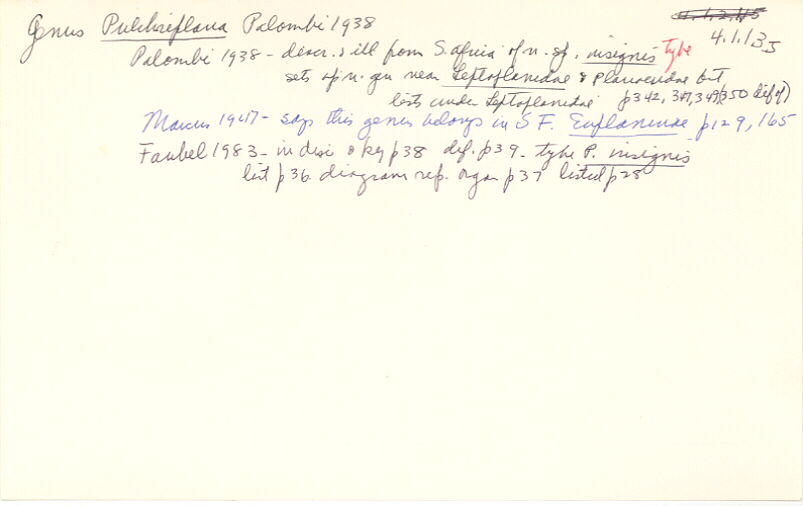 Genus Pulchriplana Palombi 1938
4.1.2.45
4.1.135
Palombi 1938 - descr. & ill from S. africa of n. sp. insignis type
sets up n. gn near Leptoplanidae & Planoceridae but
lists under Leptoplanidae p342, 347, 349, (350 dif of)
Marcus 1947 - says this genus belongs in S F. Euplaninae p129, 165
Faubel 1983 - in disc & key p38 def. p39 - type P. insignis
list p36 diagram rep. organ p37 listed p28